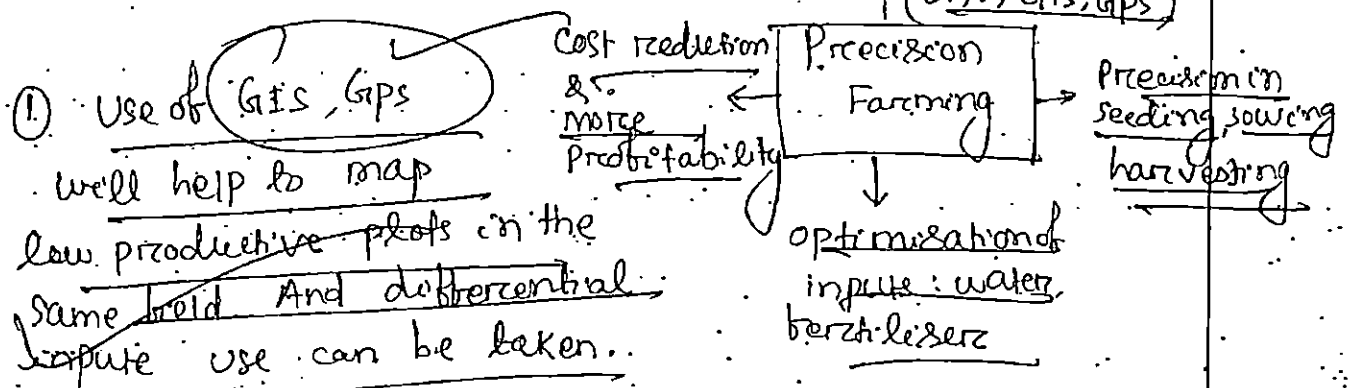 GIS, GPS)
① Use of GIS, Gps
we'll help to map
low productive plots in the
same field And differential
inputs use can be taken..
Cost reduction
&
more
profitability
Precision
Farming
Precision in
seeding, sowing
harvesting
optimisation of
inputs: water,
fertiliser